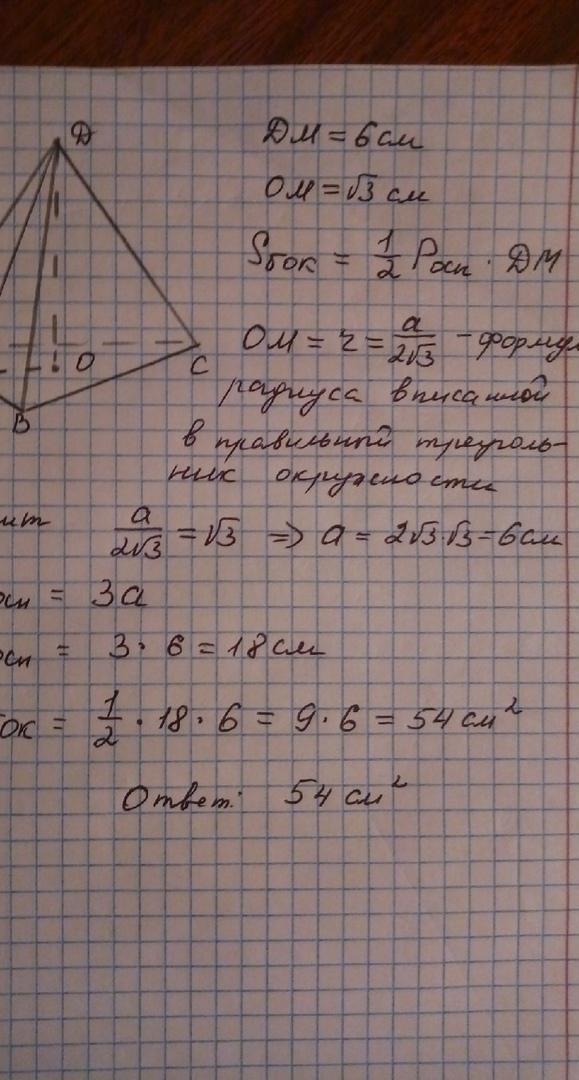 D
O
C
B
DM = 6 см
OM = √3 см
Sбок = 1/2 Pосн · DM
OM = r = a/2√3 - форму
радиуса вписанной
в правильный треуголь-
ник окружности
ит a/2√3 = √3 => a = 2√3·√3 = 6 см
осн = 3a
осн = 3 · 6 = 18 см
ок = 1/2 · 18 · 6 = 9 · 6 = 54 см²
Ответ: 54 см²